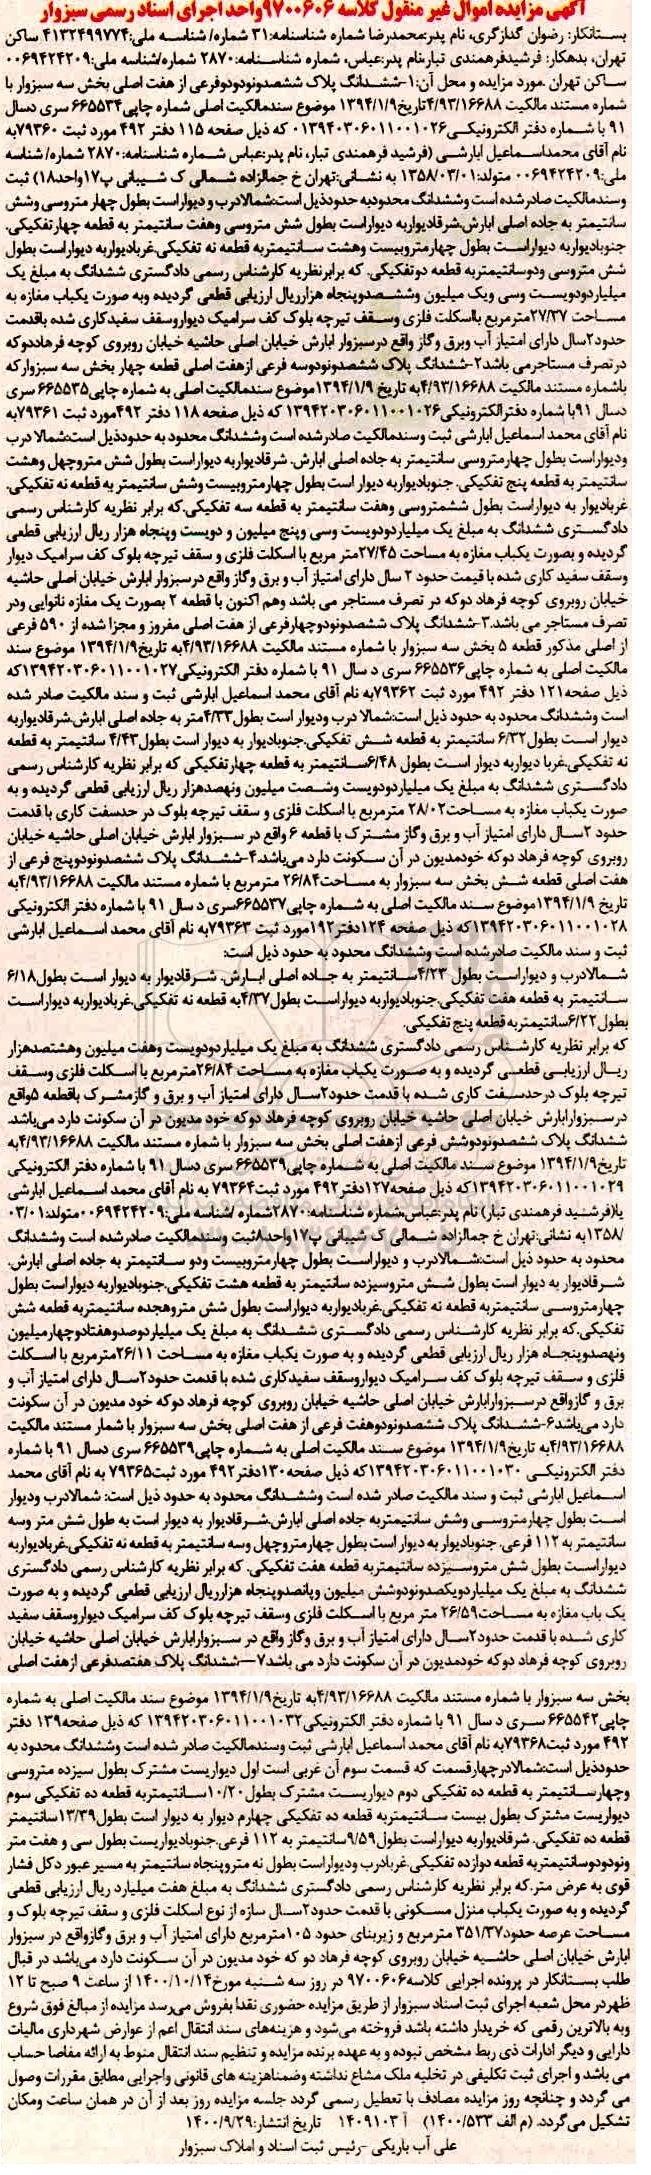 آگهی مزایده اموال غیر منقول کلاسه ۹۷۰۰۶۰۶ واحد اجرای اسناد رسمی سبزوار
بستانکار: رضوان گدازگری، نام پدر:محمدرضا شماره شناسنامه:۳۱ شماره/ شناسه ملی:۴۱۳۲۴۹۹۷۷۴ ساکن
تهران، بدهکار: فرشیدفرهمندی تبار،نام پدر:عباس، شماره شناسنامه:۲۸۷۰ شماره/شناسه ملی:۰۰۶۹۴۲۴۲۰۹
ساکن تهران .مورد مزایده و محل آن:۱-ششدانگ پلاک ششصدونودودوفرعی از هفت اصلی بخش سه سبزوار با
شماره مستند مالکیت ۴/۹۳/۱۶۶۸۸تاریخ۱۳۹۴/۱/۹ موضوع سندمالکیت اصلی شماره چاپی۶۶۵۵۳۴ سری دسال
۹۱ با شماره دفتر الکترونیکی۰۱۳۹۴۰۳۰۶۰۱۱۰۰۱۰۲۶ که ذیل صفحه ۱۱۵ دفتر ۴۹۲ مورد ثبت ۷۹۳۶۰به
نام آقای محمداسماعیل ابارشی (فرشید فرهمندی تبار، نام پدر:عباس شماره شناسنامه:۲۸۷۰ شماره/ شناسه
ملی:۰۰۶۹۴۲۴۲۰۹ متولد:۱۳۵۸/۰۳/۰۱ به نشانی:تهران خ جمالزاده شمالی ک شیبانی پ۱۷واحد۱۸) ثبت
وسندمالکیت صادرشده است وششدانگ محدودبه حدودذیل است:شمالادرب و دیواراست بطول چهار متروسی وشش
سانتیمتر به جاده اصلی ابارش.شرقادیواربه دیواراست بطول شش متروسی وهفت سانتیمتر به قطعه چهارتفکیکی.
جنوبادیواربه دیواراست بطول چهارمتروبیست وهشت سانتیمتربه قطعه نه تفکیکی.غربادیواربه دیواراست بطول
شش متروسی ودوسانتیمتربه قطعه دوتفکیکی. که برابرنظریه کارشناس رسمی دادگستری ششدانگ به مبلغ یک
میلیاردودویست وسی ویک میلیون وششصدوپنجاه هزارریال ارزیابی قطعی گردیده وبه صورت یکباب مغازه به
مساحت ۲۷/۳۷مترمربع بااسکلت فلزی وسقف تیرچه بلوک کف سرامیک دیواروسقف سفیدکاری شده باقدمت
حدود۲سال دارای امتیاز آب وبرق وگاز واقع درسبزوار ابارش خیابان اصلی حاشیه خیابان روبروی کوچه فرهاددوکه
درتصرف مستاجرمی باشد۲-ششدانگ پلاک ششصدونودوسه فرعی ازهفت اصلی قطعه چهار بخش سه سبزوارکه
باشماره مستند مالکیت ۴/۹۳/۱۶۶۸۸به تاریخ ۱۳۹۴/۱/۹موضوع سندمالکیت اصلی به شماره چاپی۶۶۵۵۳۵ سری
دسال ۹۱با شماره دفترالکترونیکی۱۳۹۴۲۰۳۰۶۰۱۱۰۰۱۰۲۶ که ذیل صفحه ۱۱۸ دفتر ۴۹۲مورد ثبت ۷۹۳۶۱به
نام آقای محمد اسماعیل ابارشی ثبت وسندمالکیت صادرشده است وششدانگ محدود به حدودذیل است:شمالا درب
ودیواراست بطول چهارمتروسی سانتیمتر به جاده اصلی ابارش. شرقادیواربه دیواراست بطول شش متروچهل وهشت
سانتیمتر به قطعه پنج تفکیکی. جنوبادیواربه دیوار است بطول چهارمتروبیست وشش سانتیمتر به قطعه نه تفکیکی.
غربادیوار به دیواراست بطول ششمتروسی وهفت سانتیمتر به قطعه سه تفکیکی.که برابر نظریه کارشناس رسمی
دادگستری ششدانگ به مبلغ یک میلیاردودویست وسی وپنج میلیون و دویست وپنجاه هزار ریال ارزیابی قطعی
گردیده و بصورت یکباب مغازه به مساحت ۲۷/۴۵متر مربع با اسکلت فلزی و سقف تیرچه بلوک کف سرامیک دیوار
وسقف سفید کاری شده با قیمت حدود ۲ سال دارای امتیاز آب و برق و گاز واقع درسبزوار ابارش خیابان اصلی حاشیه
خیابان روبروی کوچه فرهاد دوکه در تصرف مستاجر می باشد وهم اکنون با قطعه ۲ بصورت یک مغازه نانوایی ودر
تصرف مستاجر می باشد.۳-ششدانگ پلاک ششصدونودوچهارفرعی از هفت اصلی مفروز و مجزا شده از ۵۹۰ فرعی
از اصلی مذکور قطعه ۵ بخش سه سبزوار با شماره مستند مالکیت ۴/۹۳/۱۶۶۸۸به تاریخ۱۳۹۴/۱/۹ موضوع سند
مالکیت اصلی به شماره چاپی۶۶۵۵۳۶ سری د سال ۹۱ با شماره دفتر الکترونیکی۱۳۹۴۲۰۳۰۶۰۱۱۰۰۱۰۲۷که
ذیل صفحه۱۲۱ دفتر ۴۹۲ مورد ثبت ۷۹۳۶۲به نام آقای محمد اسماعیل ابارشی ثبت و سند مالکیت صادر شده
است وششدانگ محدود به حدود ذیل است:شمالا درب ودیوار است بطول۴/۳۳متر به جاده اصلی ابارش.شرقادیواربه
دیوار است بطول۶/۳۲ سانتیمتر به قطعه شش تفکیکی.جنوبادیوار به دیوار است بطول۴/۴۳ سانتیمتر به قطعه
نه تفکیکی.غربا دیواربه دیوار است بطول ۶/۴۸سانتیمتر به قطعه چهارتفکیکی که برابر نظریه کارشناس رسمی
دادگستری ششدانگ به مبلغ یک میلیاردودویست وشصت میلیون ونهصدهزار ریال ارزیابی قطعی گردیده و به
صورت یکباب مغازه به مساحت۲۸/۰۲ مترمربع با اسکلت فلزی و سقف تیرچه بلوک در حدسفت کاری با قدمت
حدود ۲سال دارای امتیاز آب و برق وگاز مشترک با قطعه ۶ واقع در سبزوار ابارش خیابان اصلی حاشیه خیابان
روبروی کوچه فرهاد دوکه خودمدیون در آن سکونت دارد می‌باشد.۴-ششدانگ پلاک ششصدونودوپنج فرعی از
هفت اصلی قطعه شش بخش سه سبزوار به مساحت۲۶/۸۴ مترمربع با شماره مستند مالکیت ۴/۹۳/۱۶۶۸۸به
تاریخ ۱۳۹۴/۱/۹موضوع سند مالکیت اصلی به شماره چاپی۶۶۵۵۳۷سری د سال ۹۱ با شماره دفتر الکترونیکی
۱۳۹۴۲۰۳۰۶۰۱۱۰۰۱۰۲۸که ذیل صفحه ۱۲۴دفتر۱۹۲مورد ثبت ۷۹۳۶۳به نام آقای محمد اسماعیل ابارشی
ثبت و سند مالکیت صادرشده است وششدانگ محدود به حدود ذیل است:
شمالادرب و دیواراست بطول ۴/۲۳سانتیمتر به جاده اصلی ابارش. شرقادیوار به دیوار است بطول۶/۱۸
سانتیمتر به قطعه هفت تفکیکی.جنوبادیواربه دیواراست بطول۴/۳۷به قطعه نه تفکیکی.غربادیواربه دیواراست
بطول۶/۲۲سانتیمتربه قطعه پنج تفکیکی.
که برابر نظریه کارشناس رسمی دادگستری ششدانگ به مبلغ یک میلیاردودویست وهفت میلیون وهشتصدهزار
ریال ارزیابی قطعی گردیده و به صورت یکباب مغازه به مساحت ۲۶/۸۴مترمربع با اسکلت فلزی وسقف
تیرچه بلوک درحدسفت کاری شده با قدمت حدود۲سال دارای امتیاز آب و برق و گازمشرک باقطعه ۵واقع
درسبزوارابارش خیابان اصلی حاشیه خیابان روبروی کوچه فرهاد دوکه خود مدیون در آن سکونت دارد می‌باشد.
ششدانگ پلاک ششصدونودوشش فرعی ازهفت اصلی بخش سه سبزوار با شماره مستند مالکیت ۴/۹۳/۱۶۶۸۸به
تاریخ۱۳۹۴/۱/۹ موضوع سند مالکیت اصلی به شماره چاپی۶۶۵۵۳۹ سری دسال ۹۱ با شماره دفتر الکترونیکی
۱۳۹۴۲۰۳۰۶۰۱۱۰۰۱۰۲۹که ذیل صفحه۱۲۷دفتر۴۹۲ مورد ثبت۷۹۳۶۴ به نام آقای محمد اسماعیل ابارشی
یا(فرشید فرهمندی تبار) نام پدر:عباس،شماره شناسنامه:۲۸۷۰شماره /شناسه ملی:۰۰۶۹۴۲۴۲۰۹متولد:۰۳/۰۱
/۱۳۵۸به نشانی:تهران خ جمالزاده شمالی ک شیبانی پ۱۷واحد۸ثبت وسندمالکیت صادرشده است وششدانگ
محدود به حدود ذیل است:شمالادرب و دیواراست بطول چهارمتروبیست ودو سانتیمتر به جاده اصلی ابارش.
شرقادیوار به دیوار است بطول شش متروسیزده سانتیمتر به قطعه هشت تفکیکی.جنوبادیواربه دیواراست بطول
چهارمتروسی سانتیمتربه قطعه نه تفکیکی.غربادیواربه دیواراست بطول شش متروهجده سانتیمتربه قطعه شش
تفکیکی.که برابر نظریه کارشناس رسمی دادگستری ششدانگ به مبلغ یک میلیاردوصدوهفتادوچهارمیلیون
ونهصدوپنجاه هزار ریال ارزیابی قطعی گردیده و به صورت یکباب مغازه به مساحت ۲۶/۱۱مترمربع با اسکلت
فلزی و سقف تیرچه بلوک کف سرامیک دیواروسقف سفیدکاری شده با قدمت حدود۲سال دارای امتیاز آب و
برق و گازواقع درسبزوارابارش خیابان اصلی حاشیه خیابان روبروی کوچه فرهاد دوکه خود مدیون در آن سکونت
دارد می‌باشد۶-ششدانگ پلاک ششصدونودوهفت فرعی از هفت اصلی بخش سه سبزوار با شمار مستند مالکیت
۴/۹۳/۱۶۶۸۸به تاریخ۱۳۹۴/۱/۹ موضوع سند مالکیت اصلی به شماره چاپی۶۶۵۵۳۹ سری دسال ۹۱ با شماره
دفتر الکترونیکی ۱۳۹۴۲۰۳۰۶۰۱۱۰۰۱۰۳۰که ذیل صفحه۱۳۰دفتر۴۹۲ مورد ثبت۷۹۳۶۵ به نام آقای محمد
اسماعیل ابارشی ثبت و سند مالکیت صادر شده است وششدانگ محدود به حدود ذیل است: شمالادرب ودیوار
است بطول چهارمتروسی وشش سانتیمتربه جاده اصلی ابارش.شرقادیوار به دیوار است به طول شش متر وسه
سانتیمتر به ۱۱۲ فرعی. جنوبادیوار به دیوار است بطول چهارمتروچهل وسه سانتیمتر به قطعه نه تفکیکی.غربادیواربه
دیواراست بطول شش متروسیزده سانتیمتربه قطعه هفت تفکیکی. که برابر نظریه کارشناس رسمی دادگستری
ششدانگ به مبلغ یک میلیاردویکصدونودوشش میلیون وپانصدوپنجاه هزارریال ارزیابی قطعی گردیده و به صورت
یک باب مغازه به مساحت۲۶/۵۹ متر مربع با اسکلت فلزی وسقف تیرچه بلوک کف سرامیک دیواروسقف سفید
کاری شده با قدمت حدود۲سال دارای امتیاز آب و برق و گاز واقع در سبزوارابارش خیابان اصلی حاشیه خیابان
روبروی کوچه فرهاد دوکه خودمدیون در آن سکونت دارد می باشد۷–ششدانگ پلاک هفتصدفرعی ازهفت اصلی
بخش سه سبزوار با شماره مستند مالکیت ۴/۹۳/۱۶۶۸۸به تاریخ۱۳۹۴/۱/۹ موضوع سند مالکیت اصلی به شماره
چاپی۶۶۵۵۴۲ سری د سال ۹۱ با شماره دفتر الکترونیکی۱۳۹۴۲۰۳۰۶۰۱۱۰۰۱۰۳۲ که ذیل صفحه۱۳۹ دفتر
۴۹۲ مورد ثبت۷۹۳۶۸به نام آقای محمد اسماعیل ابارشی ثبت وسندمالکیت صادر شده است وششدانگ محدود به
حدودذیل است:شمالادرچهارقسمت که قسمت سوم آن غربی است اول دیواریست مشترک بطول سیزده متروسی
وچهارسانتیمتر به قطعه ده تفکیکی دوم دیواریست مشترک بطول۱۰/۲۰سانتیمتربه قطعه ده تفکیکی سوم
دیواریست مشترک بطول بیست سانتیمتربه قطعه ده تفکیکی چهارم دیوار به دیوار است بطول۱۳/۳۹سانتیمتر
قطعه ده تفکیکی. شرقادیواربه دیواراست بطول۹/۵۹سانتیمتر به ۱۱۲ فرعی.جنوبادیواریست بطول سی و هفت متر
ونودودوسانتیمتربه قطعه دوازده تفکیکی.غربادرب ودیواراست بطول نه متروپنجاه سانتیمتر به مسیر عبور دکل فشار
قوی به عرض متر.که برابر نظریه کارشناس رسمی دادگستری ششدانگ به مبلغ هفت میلیارد ریال ارزیابی قطعی
گردیده و به صورت یکباب منزل مسکونی با قدمت حدود۲سال سازه از نوع اسکلت فلزی و سقف تیرچه بلوک و
مساحت عرصه حدود۳۵۱/۳۷ مترمربع و زیربنای حدود ۱۰۵مترمربع دارای امتیاز آب و برق وگازواقع در سبزوار
ابارش خیابان اصلی حاشیه خیابان روبروی کوچه فرهاد دو که خود مدیون در آن سکونت دارد می‌باشد در قبال
طلب بستانکار در پرونده اجرایی کلاسه۹۷۰۰۶۰۶ در روز سه شنبه مورخ۱۴۰۰/۱۰/۱۴ از ساعت ۹ صبح تا ۱۲
ظهردر محل شعبه اجرای ثبت اسناد سبزوار از طریق مزایده حضوری نقدا بفروش می‌رسد مزایده از مبالغ فوق شروع
وبه بالاترین رقمی که خریدار داشته باشد فروخته می‌شود و هزینه‌های سند انتقال اعم از عوارض شهرداری مالیات
دارایی و دیگر ادارات ذی ربط مشخص نبوده و به عهده برنده مزایده و تنظیم سند انتقال منوط به ارائه مفاصا حساب
می باشد و اجرای ثبت تکلیفی در تخلیه ملک مشاع نداشته وضمناهزینه های قانونی واجرایی مطابق مقررات وصول
می گردد و چنانچه روز مزایده مصادف با تعطیل رسمی گردد جلسه مزایده روز بعد از آن در همان ساعت ومکان
تشکیل می‌گردد. (م الف ۱۴۰۰/۵۳۳) آ ۱۴۰۹۱۰۳ تاریخ انتشار:۱۴۰۰/۹/۲۹
علی آب باریکی -رئیس ثبت اسناد و املاک سبزوار